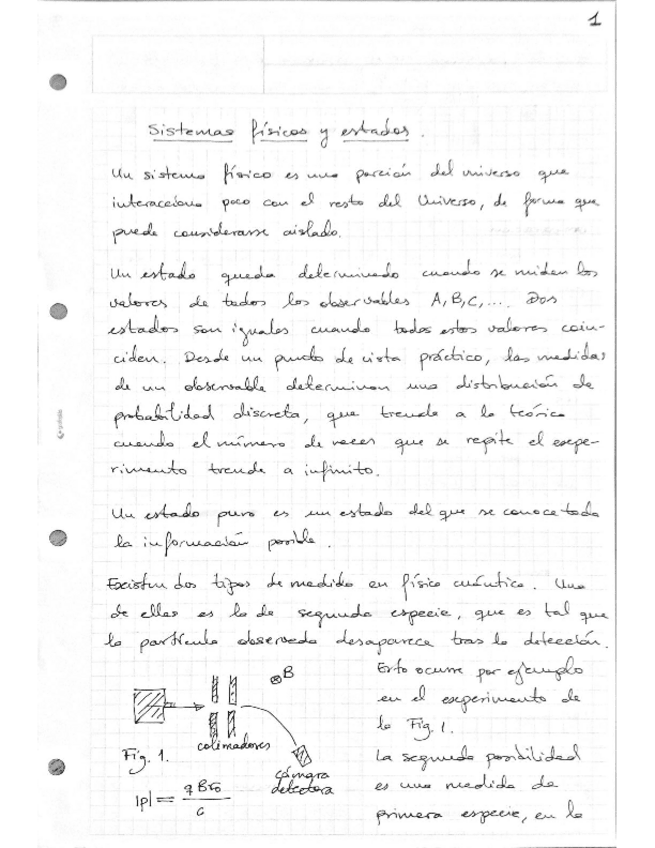 1
Sistemas físicos y estados.
Un sistema físico es una porción del universo que
interacciona poco con el resto del Universo, de forma que
puede considerarse aislado.
Un estado queda determinado cuando se miden los
valores de todos los observables A, B, C, ... Dos
estados son iguales cuando todos estos valores coin-
ciden. Desde un punto de vista práctico, las medidas
de un observable determinan una distribución de
probabilidad discreta, que tiende a la teórica
cuando el número de veces que se repite el expe-
rimento tiende a infinito.
Un estado puro es un estado del que se conoce toda
la información posible.
Existen dos tipos de medida en física cuántica. Una
de ellas es la de segunda especie, que es tal que
la partícula observada desaparece tras la detección.
Esto ocurre por ejemplo
en el experimento de
la Fig. 1.
La segunda posibilidad
es una medida de
primera especie, en la
B
colimadores
Fig. 1.
cámara
detectora
|p| = qBr0/c